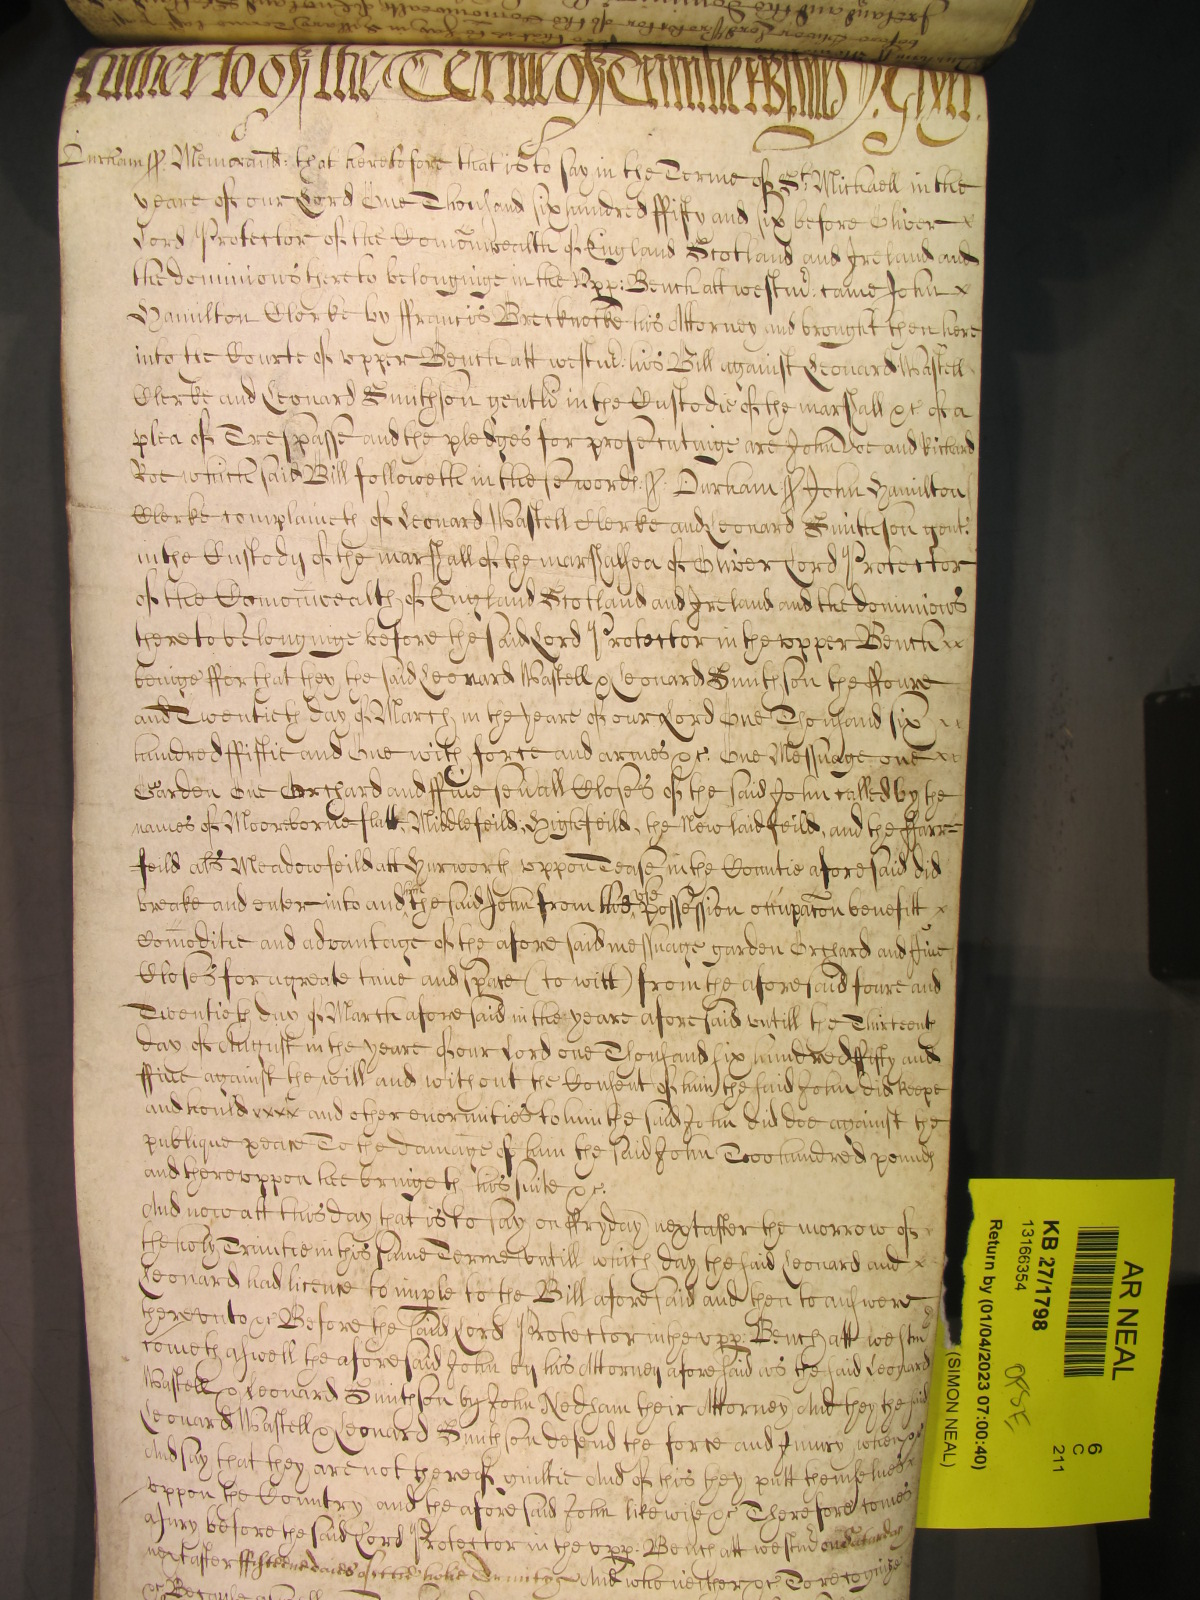 further to of the Terme of Trinitie
Durham ss. Memorand: that heretofore that is to say in the Terme of St. Michaell in the
yeare of our Lord One Thousand six hundred ffifty and six before Oliver x
Lord Protector of the Comonwealth of England Scotland and Ireland and
the dominions thereto belonginge in the Vpp: Bench att westm: came John x
Hamilton Clerke by ffrancis Brecknocke his Attorney and brought then here
into the Courte of vpper Bench att westm: his Bill against Leonard Wastell
Clerke and Leonard Smithson gentln in the Custodie of the marshall &c of a
plea of Trespasse and the pledges for prosecutinge are John Doe and Richard
Roe which said Bill followeth in these words: ss. Durham ss John Hamilton
Clerke complaineth of Leonard Wastell Clerke and Leonard Smithson gent:
in the Custody of the marshall of the marshalsea of Oliver Lord Protector
of the Comonwealth of England Scotland and Ireland and the dominions
thereto belonginge before the said Lord Protector in the vpper Bench xx
beinge ffor that they the said Leonard Wastell & Leonard Smithson the ffoure
and Twentieth day of March in the yeare of our Lord One Thousand six xx
hundred ffiftie and One with force and armes &c. One Messuage one xx
Garden One Orchard and ffiue seuall Closes of the said John called by the
names of Moorborne flatt, Middlefeild, Highfeild, the New laid feild, and the
feild als Meadowfeild att Hurworth vppon Tease in the Countie aforesaid did
breake and enter into and the said John from his possession occupacon benefitt x
Comoditie and advantage of the aforesaid messuage garden Orchard and ffiue
Closes for a greate time and space (to witt) from the aforesaid foure and
Twentieth day of March aforesaid in the yeare aforesaid vntill the Thirteenth
day of August in the yeare of our Lord one Thousand six hundred ffifty and
ffiue against the will and without the Consent of him the said John did keepe
and hould xxxx and other enormities to him the said John did doe against the
publique peace To the damage of him the said John Twoo hundred pounds
and therevppon hee bringeth his suite &c.
And now att this day that is to say on ffryday next after the morrow of
the holy Trinitie in this same Terme vntill which day the said Leonard and x
Leonard had licence to imple to the Bill aforesaid and then to answere
therevnto &c Before the said Lord Protector in the vpp: Bench att westm
cometh aswell the aforesaid John by his Attorney aforesaid as the said Leonard
Wastell & Leonard Smithson by John Nedham their Attorney And they the said
Leonard Wastell & Leonard Smithson defend the force and Iniury when &c
And say that they are not thereof guiltie And of this they putt themselues
vppon the Country and the aforesaid John likewise &c Therefore comes
a Jury before the said Lord Protector in the vpp: Bench att westm on Saturday
next after ffifteene daies of the holie Trinitye And who neither &c To recognize
&c Because aswell
AR NEAL
6
C
211
KB 27/1798
13166354
Return by (01/04/2023 07:00:40)
(SIMON NEAL)